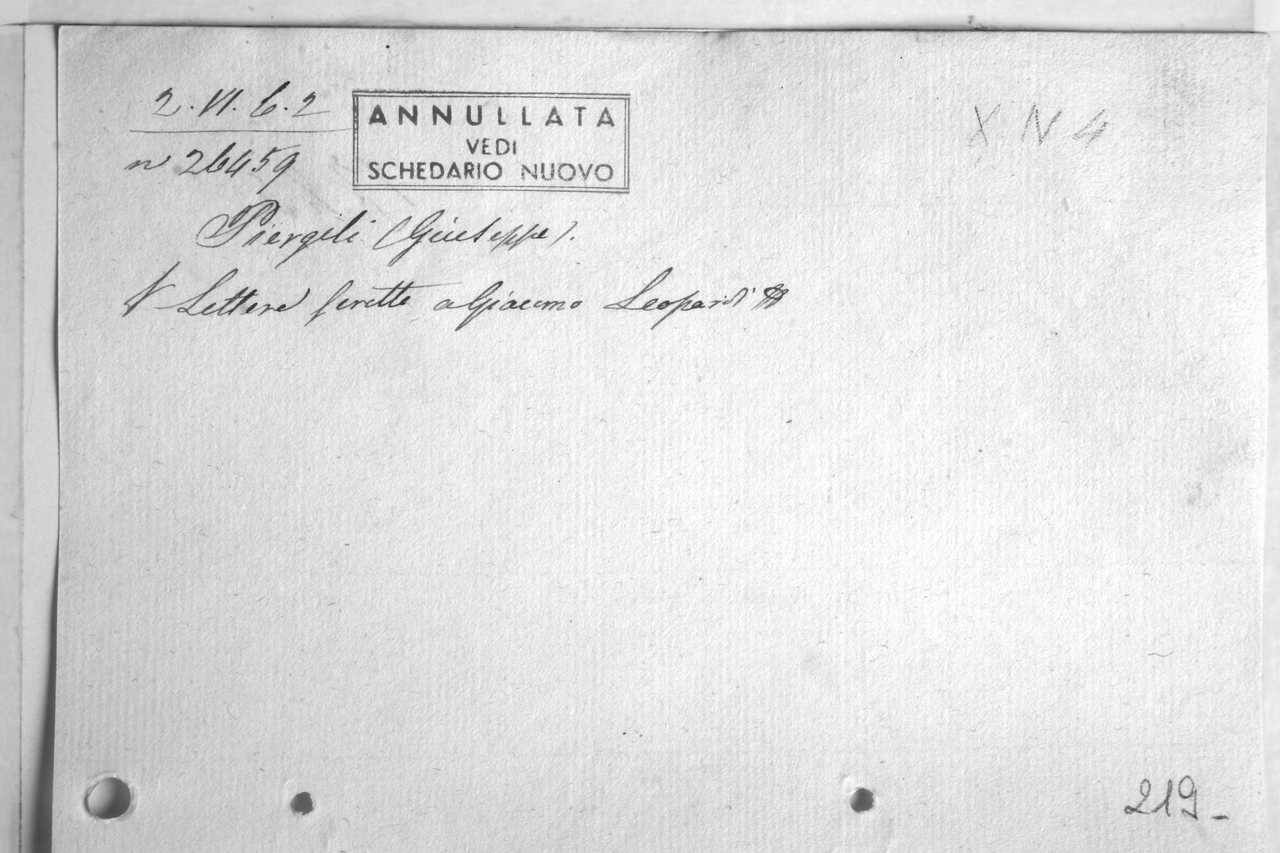 2. VI. 6. 2
ANNULLATA
VEDI
SCHEDARIO NUOVO
X N 4
n 26459
Piergili (Giuseppe).
Lettere scritte a Giacomo Leopardi
219-